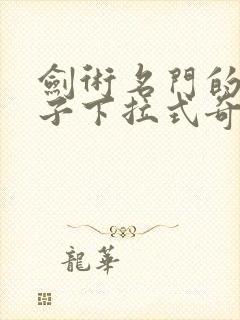 劍術名門的
子下拉式奇
龍華